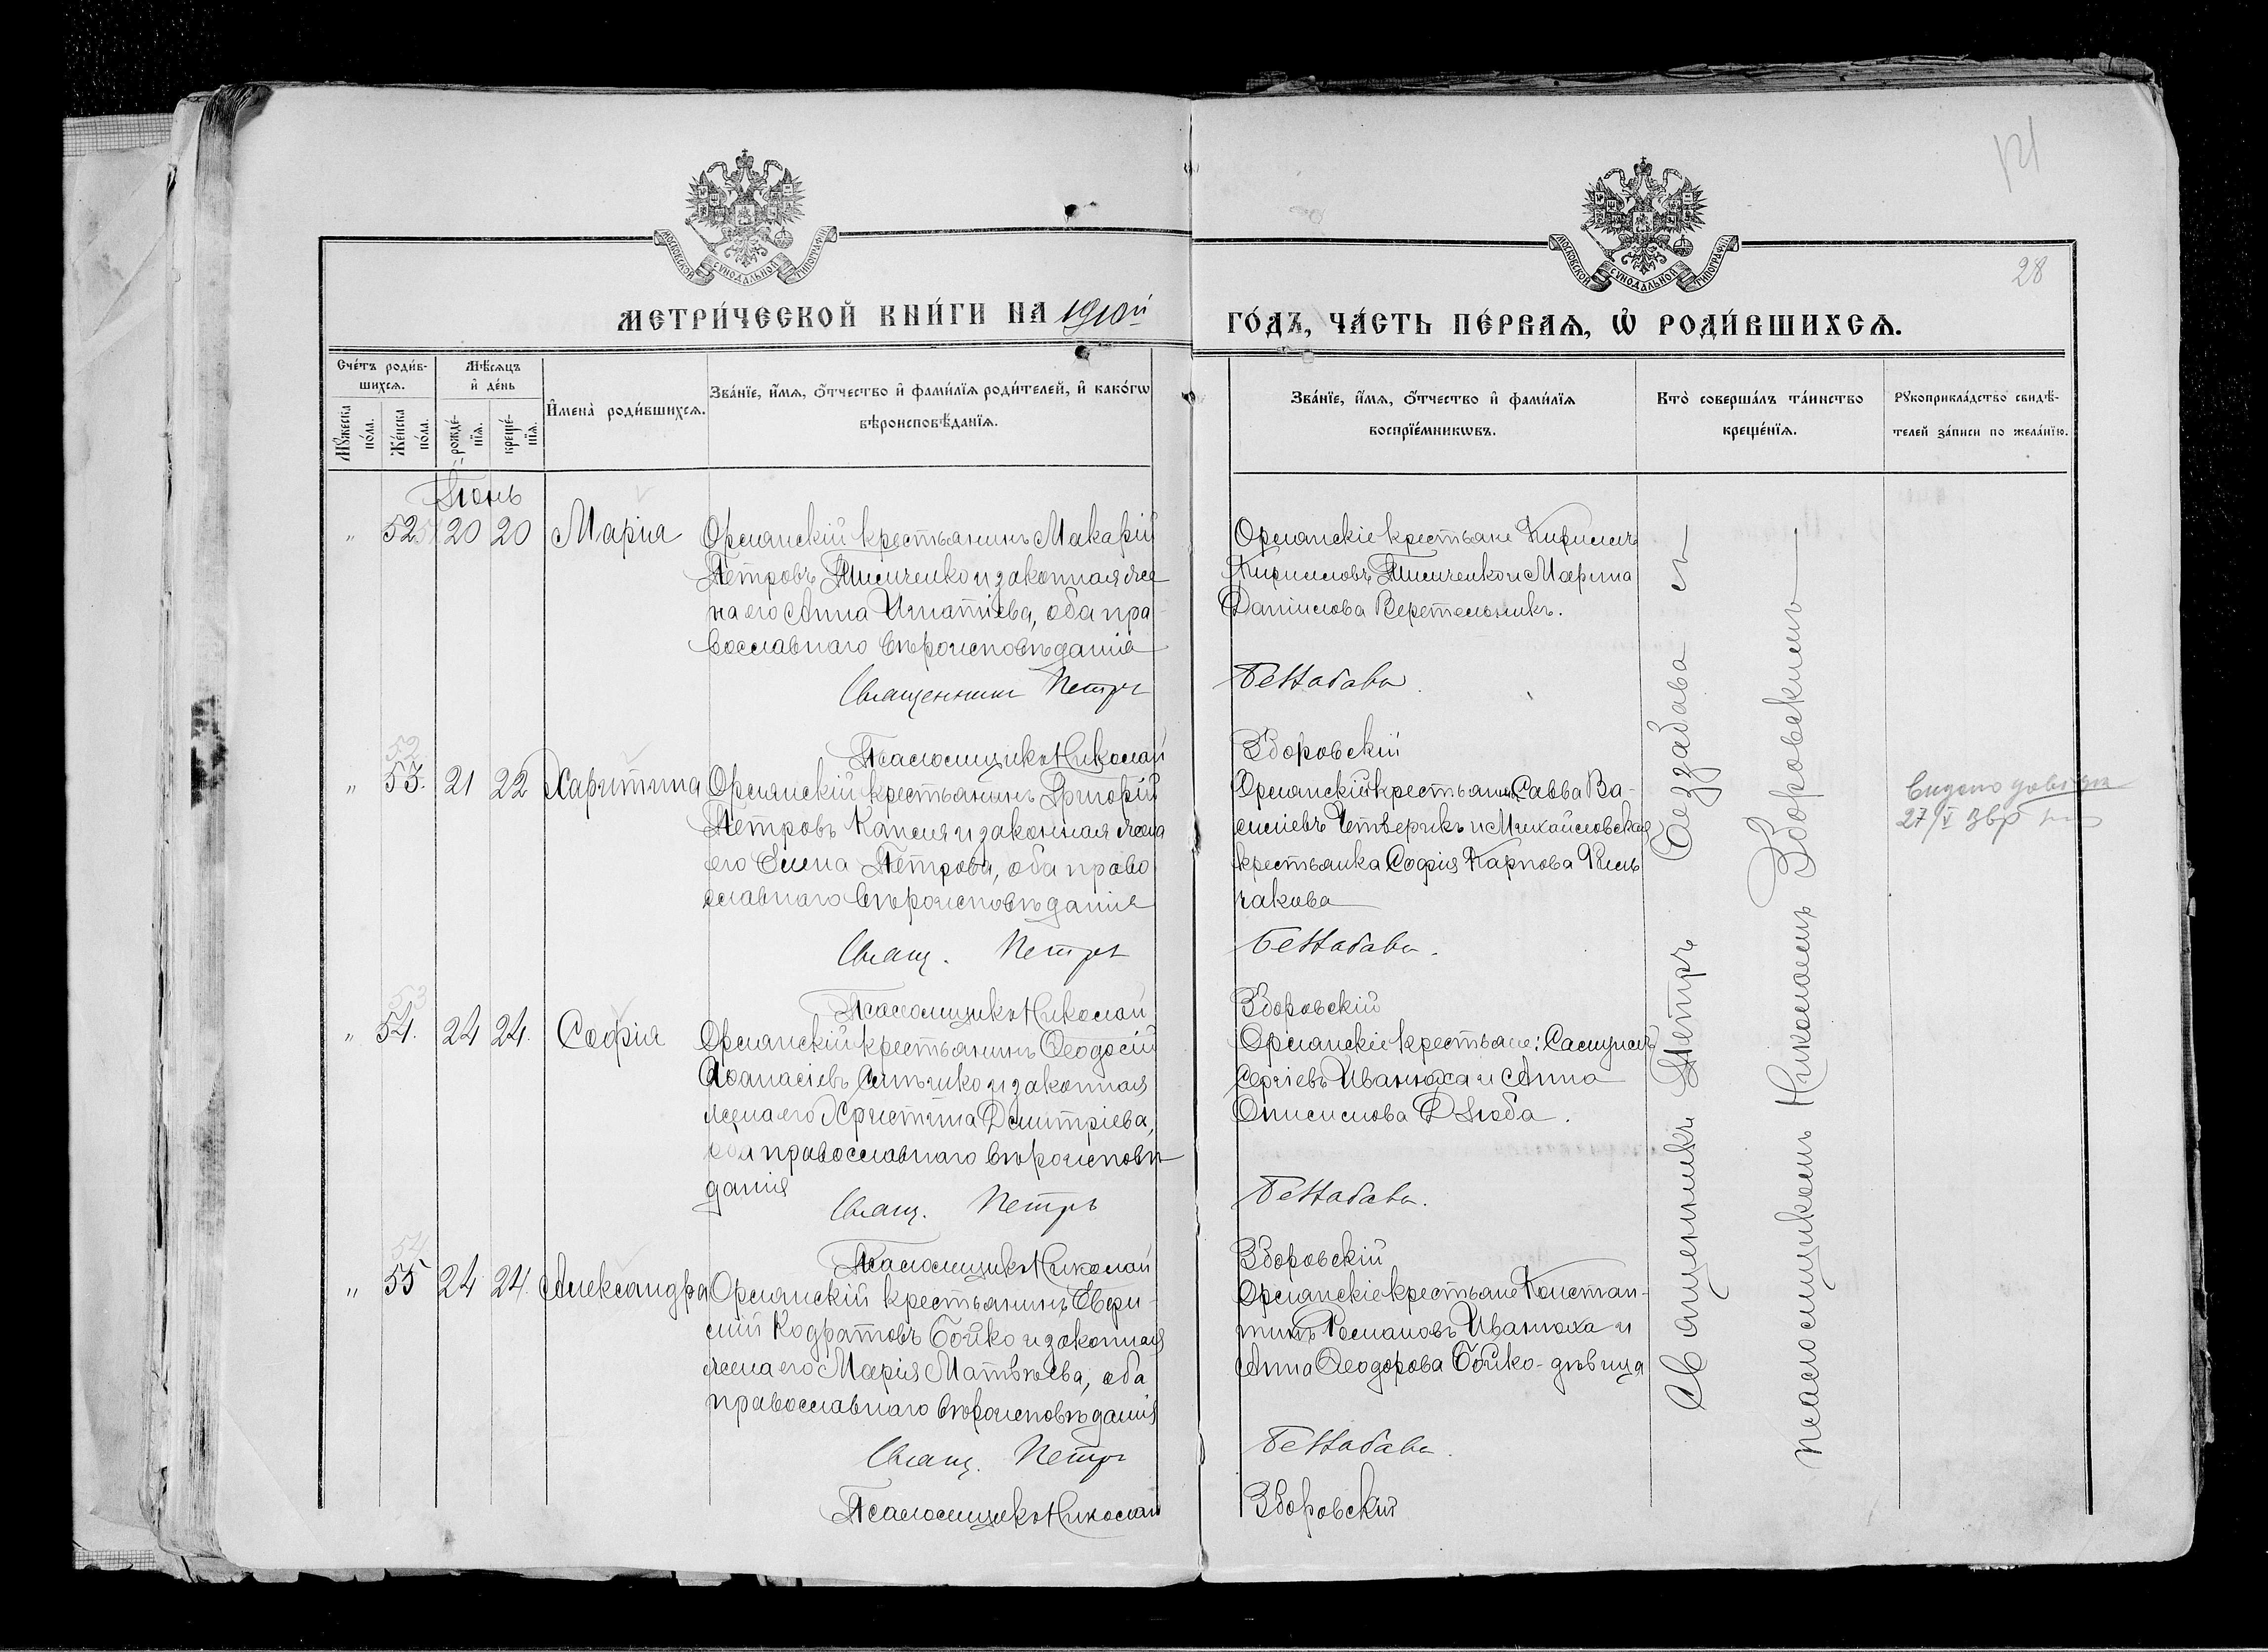 121
28
МОСКОВСКОЙ СѴНОДАЛЬНОЙ ТИПОГРАФІИ
МОСКОВСКОЙ СѴНОДАЛЬНОЙ ТИПОГРАФІИ
МЕТРИ́ЧЕСКОЙ КНИ́ГИ НА 1910й
ГО́ДЪ, ЧА́СТЬ ПЕ́РВАѦ, Ѡ҆ РОДИ́ВШИХСѦ.
Сче́тъ роди́в-
шихсѧ.
Мꙋ́жеска по́ла.
Же́нска по́ла.
Мѣ́сѧцъ
и҆ де́нь
рожде́-нїѧ.
креще́-нїѧ.
И҆мена̀ роди́вшихсѧ.
Зва́нїе, и҆́мѧ, ѻ҆́тчество и҆ фами́лїѧ роди́телей, и҆ како́гѡ
вѣроисповѣ́данїѧ.
Зва́нїе, и҆́мѧ, ѻ҆́тчество и҆ фами́лїѧ
воспрїе́мникѡвъ.
Кто̀ соверша́лъ та́инство
креще́нїѧ.
Рꙋкоприкла́дство свидѣ́-
телей за́писи по жела́нїю.
Іюнь
" 52 20 20 Марiя
Орлянскій крестьянинъ Макарій
Петровъ Тимченко и законная же
на его Анна Игнатіева, оба пра-
вославнаго вѣроисповѣданія
Священникъ Петръ
Псаломщикъ Николай
Орлянскіе крестьяне Кириллъ
Кирилловъ Тимченко и Марина
Даніилова Веретельникъ.
Беззабава
Зборовскій
52
" 53. 21 22 Харитина
Орлянскій крестьянинъ Григорій
Петровъ Капля и законная жена
его Елена Петрова, оба право
славнаго вѣроисповѣданія
Свящ. Петръ
Псаломщикъ Николай
Орлянскій крестьянинъ Савва Ва-
силіевъ Четверикъ и Михайловская
крестьянка Софія Карпова
чакова
Беззабава.
Зборовскій
27/V
53
" 54. 24 24. Софія
Орлянскій крестьянинъ Ѳеодосій
Аѳанасіевъ и законная
жена его Христина Димитріева,
оба православнаго вѣроисповѣ-
данія
Свящ. Петръ
Псаломщикъ Николай
Орлянскіе крестьяне: Самуилъ
Сергіевъ Иванюха и Анна
Онисимова Дзюба.
Беззабава.
Зборовскій
54
" 55 24 24. Александра
Орлянскій крестьянинъ Евфи-
мій Кодратовъ Бойко и законная
жена его Марія Матвѣева, оба
православнаго вѣроисповѣданія
Свящ. Петръ
Псаломщикъ Николай
Орлянскіе крестьяне Констан-
тинъ Романовъ Иванюха и
Анна Ѳеодорова Бойко - дѣвица
Беззабава.
Зборовскій
Священникъ Петръ Беззабава съ
псаломщикомъ Николаемъ Зборовскимъ